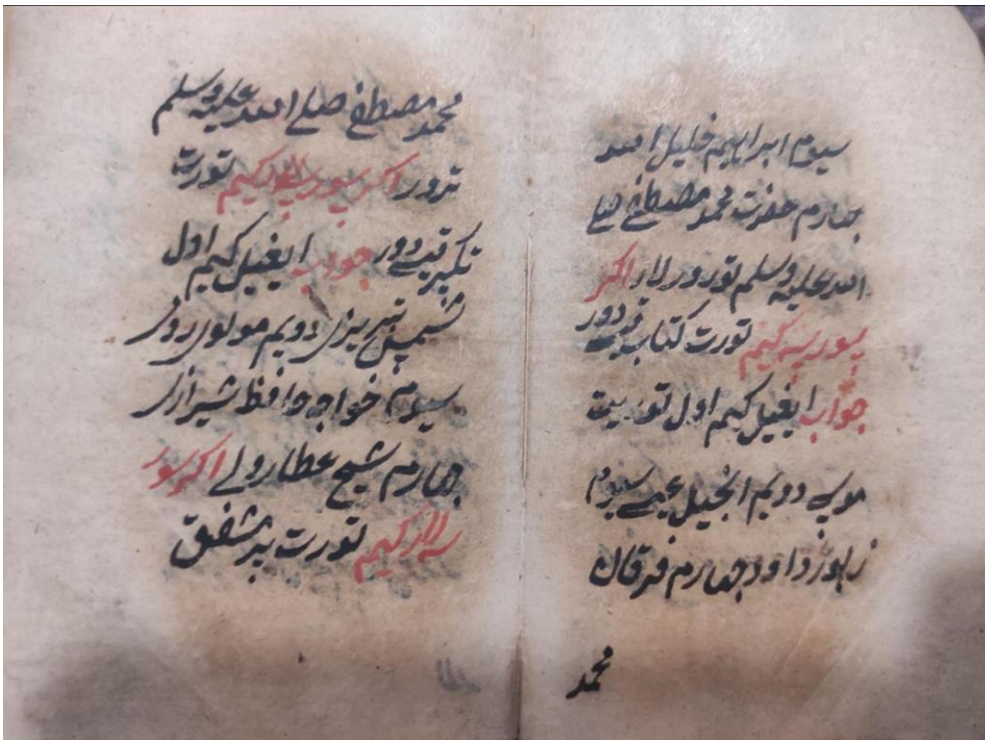 سیوم ابراهیم خلیل الله
چهارم حضرت محمد مصطفی صلی
الله علیه وسلم تورور لار اکر
سورسه کیم تورت کتاب قیدور
جواب ایغیل کیم اول توریت
موسی دویم انجیل عیسی سیوم
زبور داود چهارم فرقان
محمد
محمد مصطفی صلی الله علیه وسلم
تورور اکر سورسه لار کیم تورت
تکبیر قیدور جواب ایغیل کیم اول
شمس تبریزی دویم مولوی روم
سیوم خواجه حافظ شیرازی
چهارم شیخ عطار ولی اکر سور
سه لار کیم تورت پیر مشفق